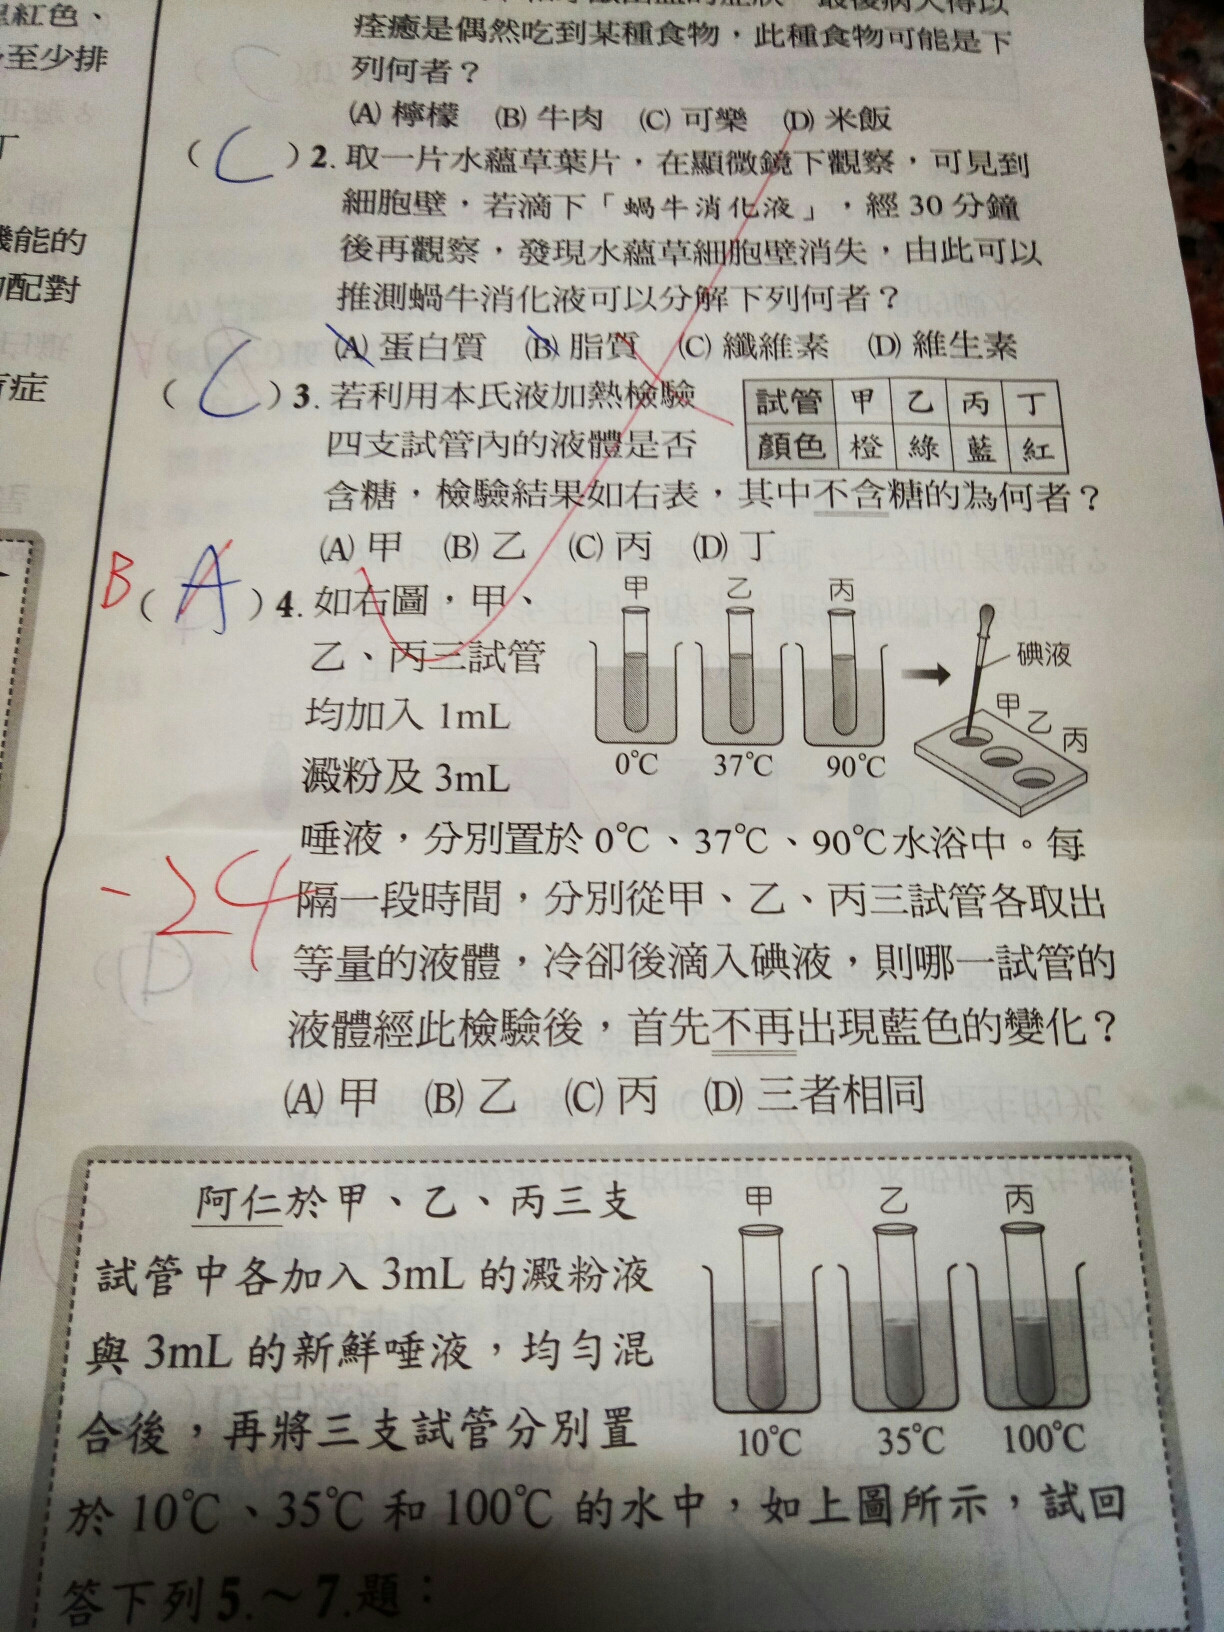 紅色、
至少排
丁
機能的
配對
症
痊癒是偶然吃到某種食物，此種食物可能是下
列何者？
(A) 檸檬 (B) 牛肉 (C) 可樂 (D) 米飯
( C ) 2. 取一片水蘊草葉片，在顯微鏡下觀察，可見到
細胞壁，若滴下「蝸牛消化液」，經 30 分鐘
後再觀察，發現水蘊草細胞壁消失，由此可以
推測蝸牛消化液可以分解下列何者？
(A) 蛋白質 (B) 脂質 (C) 纖維素 (D) 維生素
( C ) 3. 若利用本氏液加熱檢驗
四支試管內的液體是否
含糖，檢驗結果如右表，其中不含糖的為何者？
試管 甲 乙 丙 丁
顏色 橙 綠 藍 紅
(A) 甲 (B) 乙 (C) 丙 (D) 丁
B ( A ) 4. 如右圖，甲、
乙、丙三試管
均加入 1mL
澱粉及 3mL
唾液，分別置於 0℃、37℃、90℃水浴中。每
隔一段時間，分別從甲、乙、丙三試管各取出
等量的液體，冷卻後滴入碘液，則哪一試管的
液體經此檢驗後，首先不再出現藍色的變化？
甲 乙 丙
0℃ 37℃ 90℃
碘液
甲 乙 丙
-24
(A) 甲 (B) 乙 (C) 丙 (D) 三者相同
阿仁於甲、乙、丙三支
試管中各加入 3mL 的澱粉液
與 3mL 的新鮮唾液，均勻混
合後，再將三支試管分別置
於 10℃、35℃ 和 100℃ 的水中，如上圖所示，試回
答下列 5.～7.題：
甲 乙 丙
10℃ 35℃ 100℃